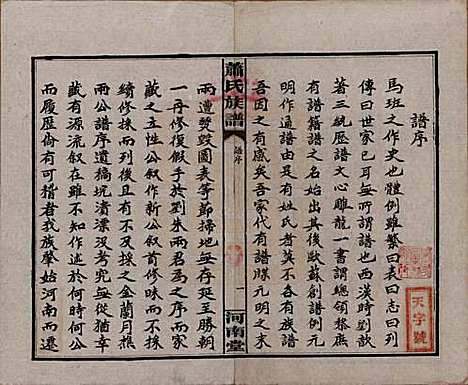 譜序
馬班之作史也體例雖繁曰表曰志曰列
傳曰世家已耳無所謂譜也西漢時劉歆
著三統歷譜文心雕龍一書謂總領黎庶
有譜籍譜之名始出其後歐蘇創譜例元
明作通譜由是有姓氏者莫不各有族譜
吾因之有感矣吾家代有譜牒元明之末
蕭氏族譜
譜序
一
河南堂
兩遭燹毀圖表等節掃地無存延至勝朝
一再修復假手於劉朱兩君為之序而家
藏之五性公叙作新公叙首修昧而不久
續修採而到失實不然採之金蘭月樵
兩公譜序遺稿坑潰漂沒考究無從猶幸
藏有源流叙在亦知作述於何日何時
而履歷倘有可稽者我族肇始河南而遷
天字號